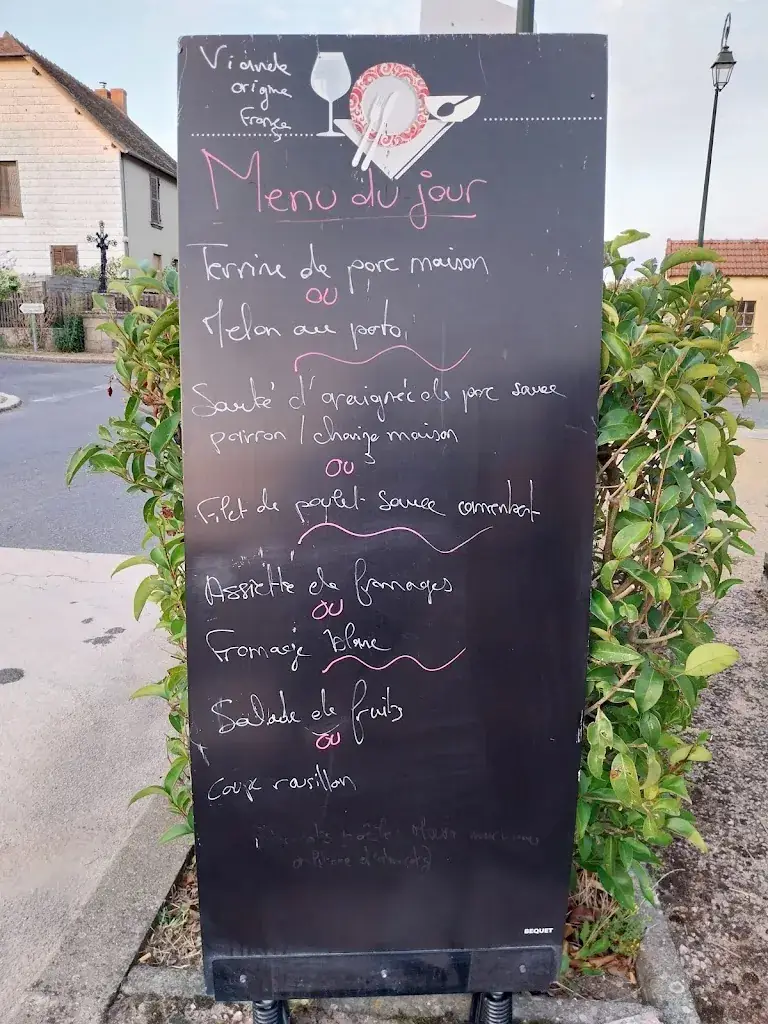 Viande
origine
France
Menu du jour
Terrine de porc maison
ou
Melon au porto
Sauté d'araignée de porc sauce
poivron / chorizo maison
ou
Filet de poulet sauce camembert
Assiette de fromages
ou
Fromage blanc
Salade de fruits
ou
Coupe
BEQUET